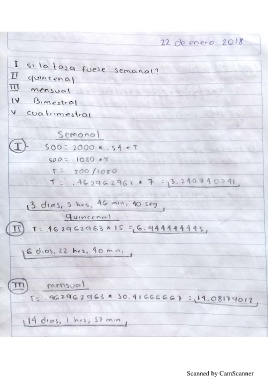 22 de enero 2018
I si la taza fuese semanal?
II quincenal
III mensual
IV Bimestral
V cuatrimestral
Semanal
I 500 = 2000 * .54 * T
500 = 1080 * T
T = 500/1080
T = .462962963 * 7 = 3.240740741
3 dias, 5 hrs, 46 min, 40 seg
quincenal
II T = .462962963 * 15 = 6.944444445
6 dias, 22 hrs, 40 min
III mensual
T = .462962963 * 30.41666667 = 14.08179012
14 dias, 1 hrs, 57 min
Scanned by CamScanner